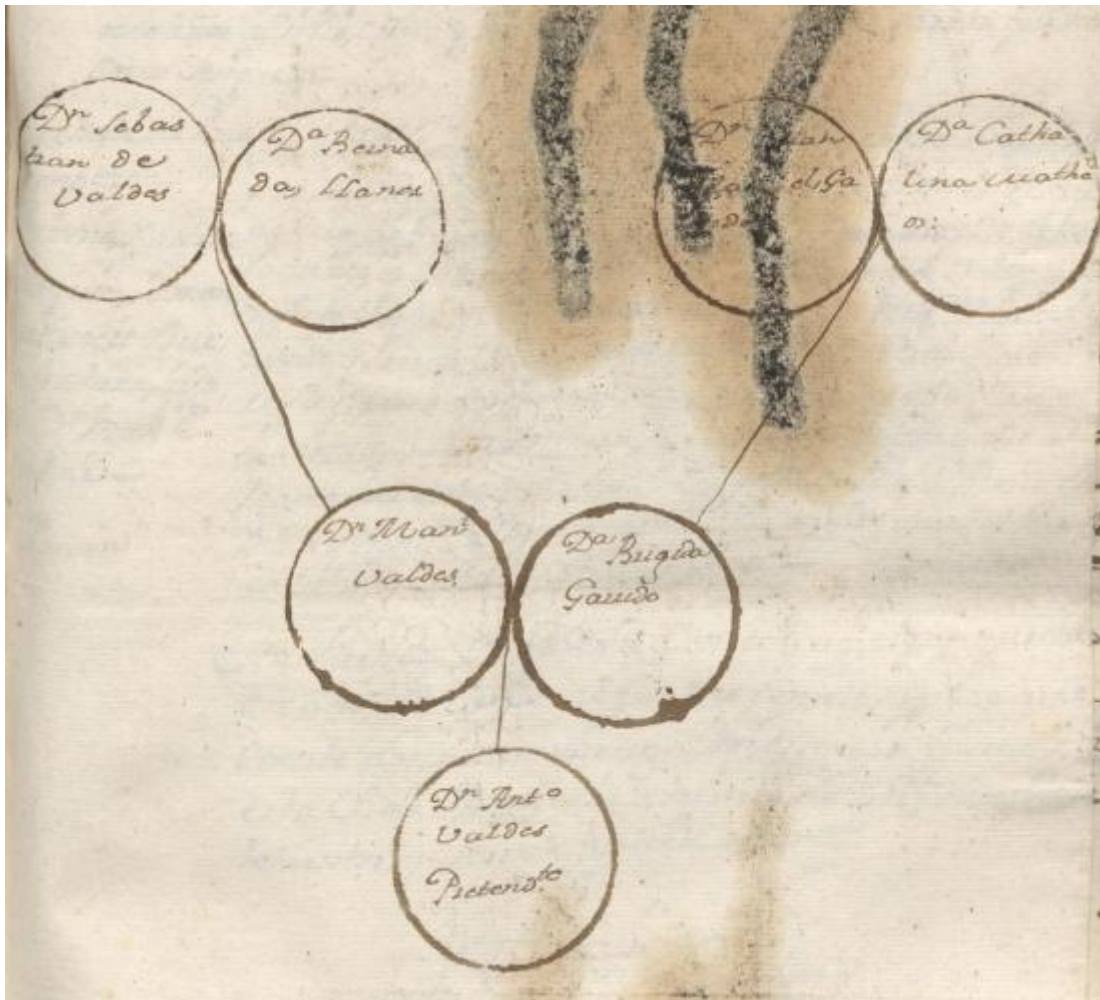 Dⁿ Sebas
tian de
Valdes
Dᵃ Berna
da, LLanos
Dⁿ
el Ga
Dᵃ Catha
lina Mathe
os:
Dⁿ Manˡ
Valdes
Dᵃ Brigida
Garrido
Dⁿ Antᵒ
Valdes
Pretendᵗᵉ